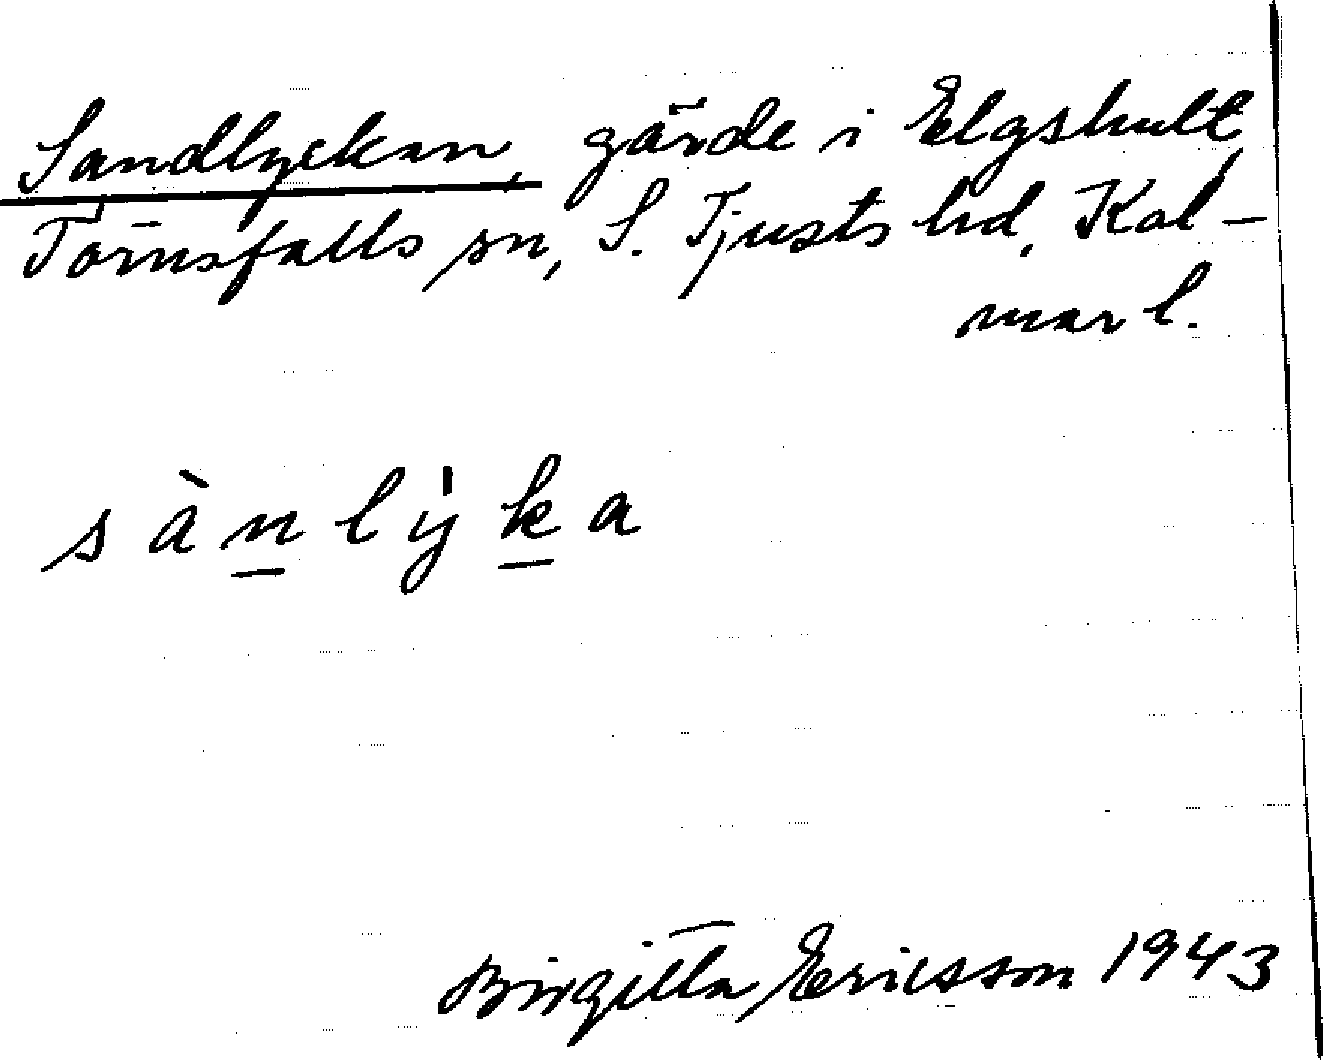 Sandlyckan, gärde i Elgshult,
Törnsfalls sn, S. Tjusts hd, Kal-
mar l.
sànlỳka
Birgitta Ericsson 1943